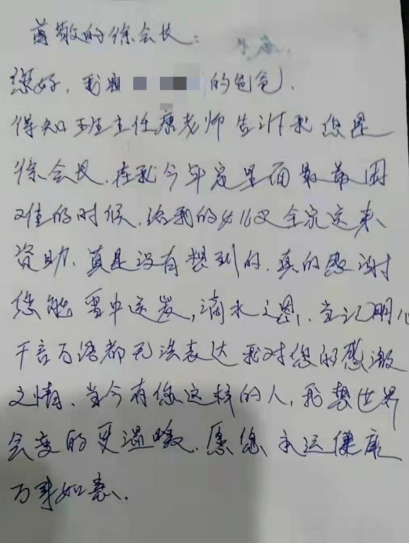 尊敬的徐会长：
您好，我是的爸爸，
得知班主任康老师告诉我您是
徐会长，在我今年家里面最最困
难的时候，给我的女儿又全家送来
资助，真是没有想到的，真的感谢
您能雪中送炭，滴水之恩，当记明心
千言万语都无法表达我对您的感激
之情，当今有您这样的人，我想世界
会变的更温暖，愿您永远健康
万事如意、